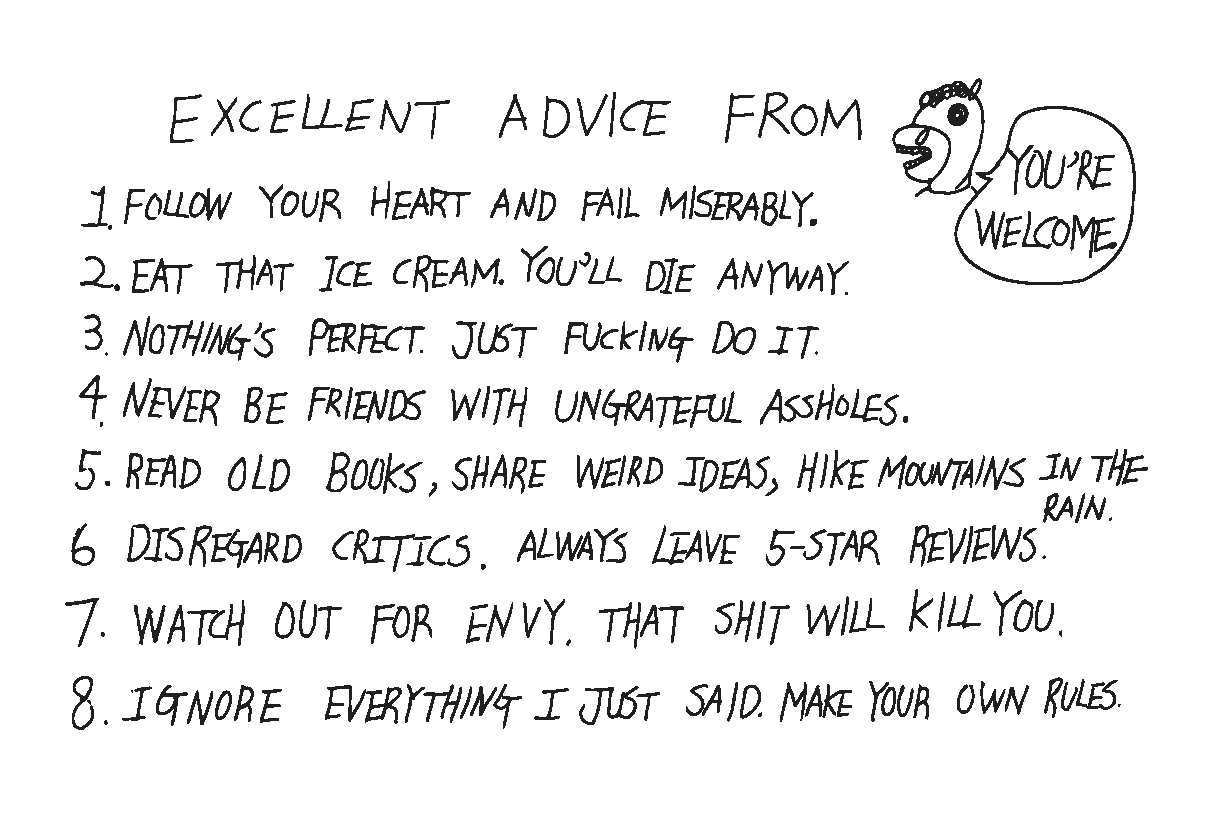 EXCELLENT ADVICE FROM
YOU'RE
WELCOME.
1. FOLLOW YOUR HEART AND FAIL MISERABLY.
2. EAT THAT ICE CREAM. YOU'LL DIE ANYWAY.
3. NOTHING'S PERFECT. JUST FUCKING DO IT.
4. NEVER BE FRIENDS WITH UNGRATEFUL ASSHOLES.
5. READ OLD BOOKS, SHARE WEIRD IDEAS, HIKE MOUNTAINS IN THE
RAIN.
6 DISREGARD CRITICS. ALWAYS LEAVE 5-STAR REVIEWS.
7. WATCH OUT FOR ENVY. THAT SHIT WILL KILL YOU.
8. IGNORE EVERYTHING I JUST SAID. MAKE YOUR OWN RULES.